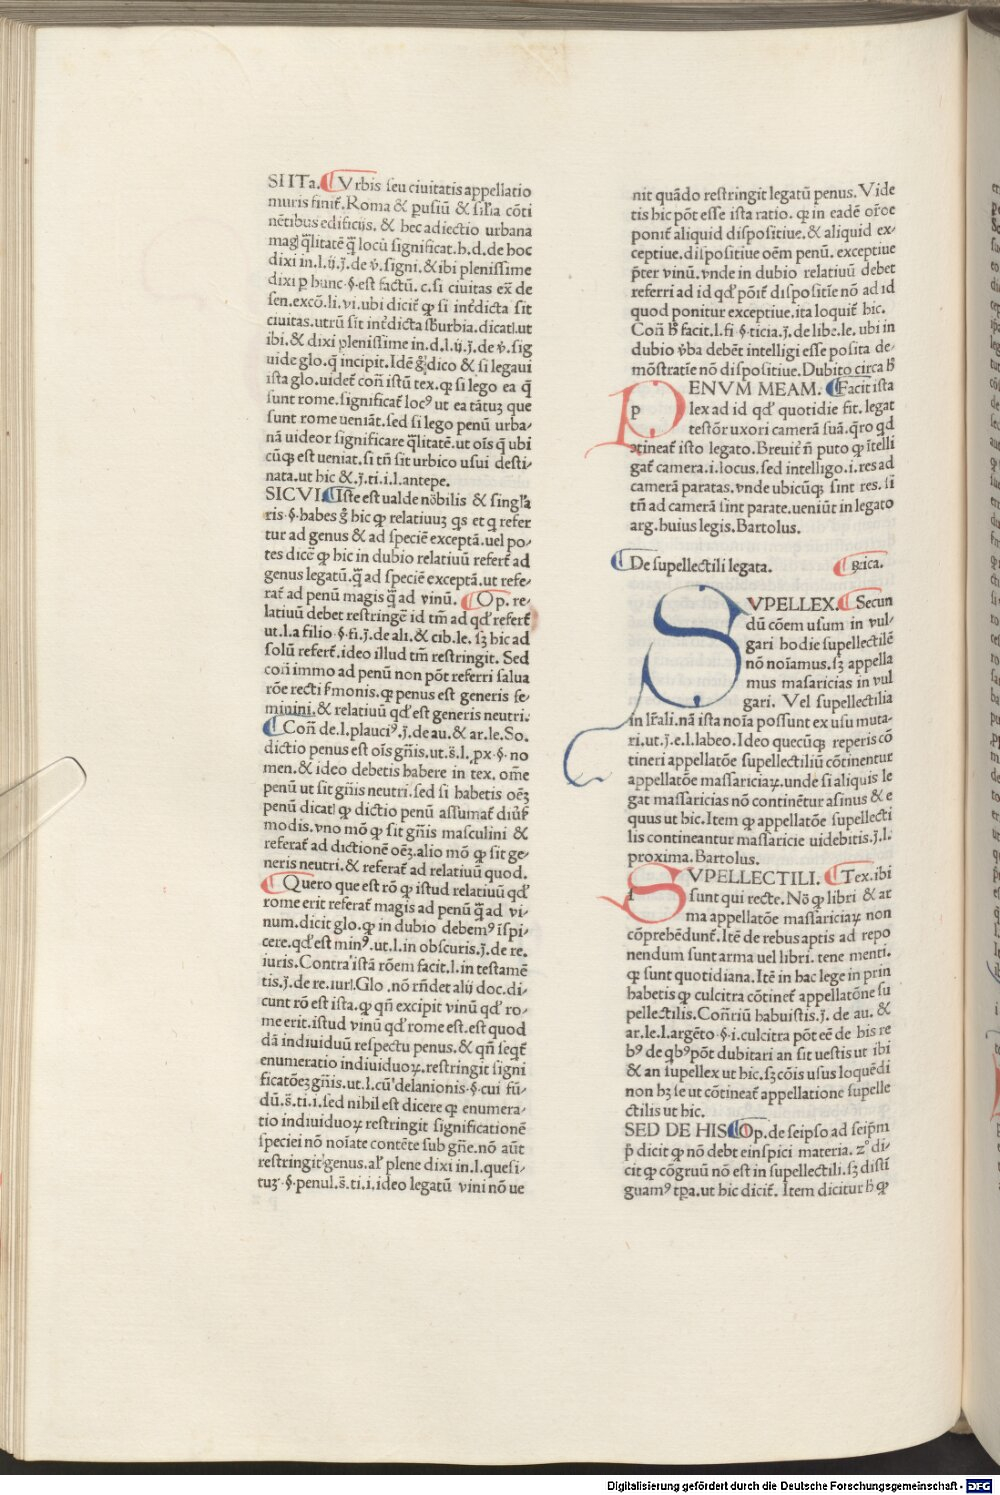 SI ITa. Vrbis seu ciuitatis appellatio
muris finit̃. Roma & pusiũ & sil̃ia cõti
nẽtibus edificijs. & hec adiectio urbana
mag q̃litatẽ q̃ locũ significat. h. d. de hoc
dixi in. l. ij. j̃. de ṽ. signi. & ibi plenissime
dixi p hunc. §. est factũ. c. si ciuitas ex̃ de
sen. excõ. li. vi. ubi dicit̃ ꝙ si int̃dicta sit
ciuitas. utrũ sit int̃dicta sb̃urbia. dicat. ut
ibi. & dixi plenissime in. d. l. ij. j̃. de ṽ. sig
uide glo. q̃ incipit. Idẽ g̃ dico & si legaui
ista glo. uidet̃ coñ istũ tex. ꝙ si lego ea q̃
sunt rome. significat̃ locꝰ ut ea tãtuꝫ que
sunt rome ueniãt. sed si lego penũ urba⸗
nã uideor significare q̃litatẽ. ut oĩs q̃ ubi
cũqꝫ est ueniat. si tñ sit urbico usui desti⸗
nata. ut hic &. j̃. ti. i. l. antepe.
SICVI. Iste est ualde nobilis & singl̃a
ris. §. habes g̃ hic ꝙ relatiuuꝫ qs et q refer
tur ad genus & ad speciẽ exceptã. uel po⸗
tes dicẽ ꝙ hic in dubio relatiuũ refert̃ ad
genus legatũ. q̃ ad speciẽ exceptã. ut refe⸗
rat̃ ad penũ magis q̃ ad vinũ. Op. re⸗
latiuũ debet restringẽ id tm̃ ad qd̃ refert̃
ut. l. a filio. §. fi. j̃. de ali. & cib. le. sꝫ hic ad
solũ refert̃. ideo illud tm̃ restringit. Sed
coñ immo ad penũ non põt referri salua
rõe recti s̃monis. ꝙ penus est generis fe⸗
minini. & relatiuũ qd̃ est generis neutri.
Coñ de. l. plauciꝰ. j̃. de au. & ar. le. So.
dictio penus est oĩs gñis. ut. s̃. l. px. §. no
men. & ideo debetis habere in tex. om̃e
penũ ut sit gñis neutri. sed si habetis oẽꝫ
penũ dicat ꝙ dictio penũ assumat̃ diũs̃
modis. vno mõ ꝙ sit gñis masculini &
referat̃ ad dictionẽ oẽꝫ. alio mõ ꝙ sit ge⸗
neris neutri. & referat̃ ad relatiuũ quod.
Quero que est rõ ꝙ istud relatiuũ qd̃
rome erit referat̃ magis ad penũ q̃ ad vi⸗
num. dicit glo. ꝙ in dubio debemꝰ ĩspi⸗
cere. qd̃ est minꝰ. ut. l. in obscuris. j̃. de re.
iuris. Contra istã rõem facit. l. in testamẽ
tis. j̃. de re. iur. Glo. nõ rñdet alij doc. di⸗
cunt rõ est ista. ꝙ qñ excipit vinũ qd̃ ro⸗
me erit. istud vinũ qd̃ rome est. est quod
dã indiuiduũ respectu penus. & qñ seqt̃
enumeratio indiuiduoꝝ. restringit signi
ficatõeꝫ gñis. ut. l. cũ delanionis. §. cui fũ⸗
dũ. s̃. ti. i. sed nihil est dicere ꝙ enumera⸗
tio indiuiduoꝝ restringit significationẽ
speciei nõ noĩate contẽte sub gñe. nõ aũt
restringit genus. al̃ plene dixi in. l. quesi⸗
tuꝫ. §. penul. s̃. ti. i. ideo legatũ vini nõ ue
nit quãdo restringit legatũ penus. Vide
tis hic põt esse ista ratio. ꝙ in eadẽ or̃oe
ponit̃ aliquid dispositiue. & aliquid ex⸗
ceptiue. dispositiue oẽm penũ. exceptiue
p̃ter vinũ. vnde in dubio relatiuũ debet
referri ad id qd̃ põit̃ dispositĩe nõ ad id
quod ponitur exceptiue. ita loquit̃ hic.
Coñ h̃ facit. l. fi. §. ticia. j̃. de libe. le. ubi in
dubio ṽba debẽt intelligi esse posita de⸗
mõstratĩe nõ dispositiue. Dubito circa h̃
PENVM MEAM. Facit ista
lex ad id qd̃ quotidie fit. legat
testõr uxori camerã suã. q̃ro qd
ꝯtineat̃ isto legato. Breuit̃ ñ puto ꝙ ĩtelli
gat̃ camera. i. locus. sed intelligo. i. res ad
camerã paratas. vnde ubicũqꝫ sint res. si
tñ ad camerã sint parate. ueniũt in legato
arg. huius legis. Bartolus.
De supellectili legata. Rrica.
SVPELLEX. Secun
dũ cõem usum in vul⸗
gari hodie supellectilẽ
nõ noĩamus. sꝫ appella
mus masaricias in vul
gari. Vel supellectilia
in lr̃ali. nã ista noĩa possunt ex usu muta⸗
ri. ut. j̃. e. l. labeo. Ideo quecũqꝫ reperis cõ
tineri appellatõe supellectiliũ cõtinentur
appellatõe massariciaꝝ. unde si aliquis le
gat massaricias nõ continẽtur asinus & e
quus ut hic. Item ꝙ appellatõe supellecti
lis contineantur massaricie uidebitis. j̃. l.
proxima. Bartolus.
SVPELLECTILI. Tex. ibi
sunt qui recte. Nõ ꝙ libri & ar
ma appellatõe massariciaꝝ non
cõprehẽdunt̃. Itẽ de rebus aptis ad repo
nendum sunt arma uel libri. tene menti.
ꝙ sunt quotidiana. Itẽ in hac lege in prin
habetis ꝙ culcitra cõtinet̃ appellatõne su
pellectilis. Coñriũ habuistis. j̃. de au. &
ar. le. l. argẽto. §. i. culcitra põt eẽ de his re
bꝰ de qbꝰ põt dubitari an sit uestis ut ibi
& an supellex ut hic. sꝫ cõis usus loquẽdi
non hꝫ se ut cõtineat̃ appellatione supelle
ctilis ut hic.
SED DE HIS Op. de seipso ad seip̃m
p̃ dicit ꝙ nõ debt einspici materia. zº di⸗
cit ꝙ cõgruũ nõ est in supellectili. sꝫ disti
guamꝰ tp̃a. ut hic dicit̃. Item dicitur h̃ ꝙ
Digitalisierung gefördert durch die Deutsche Forschungsgemeinschaft - DFG